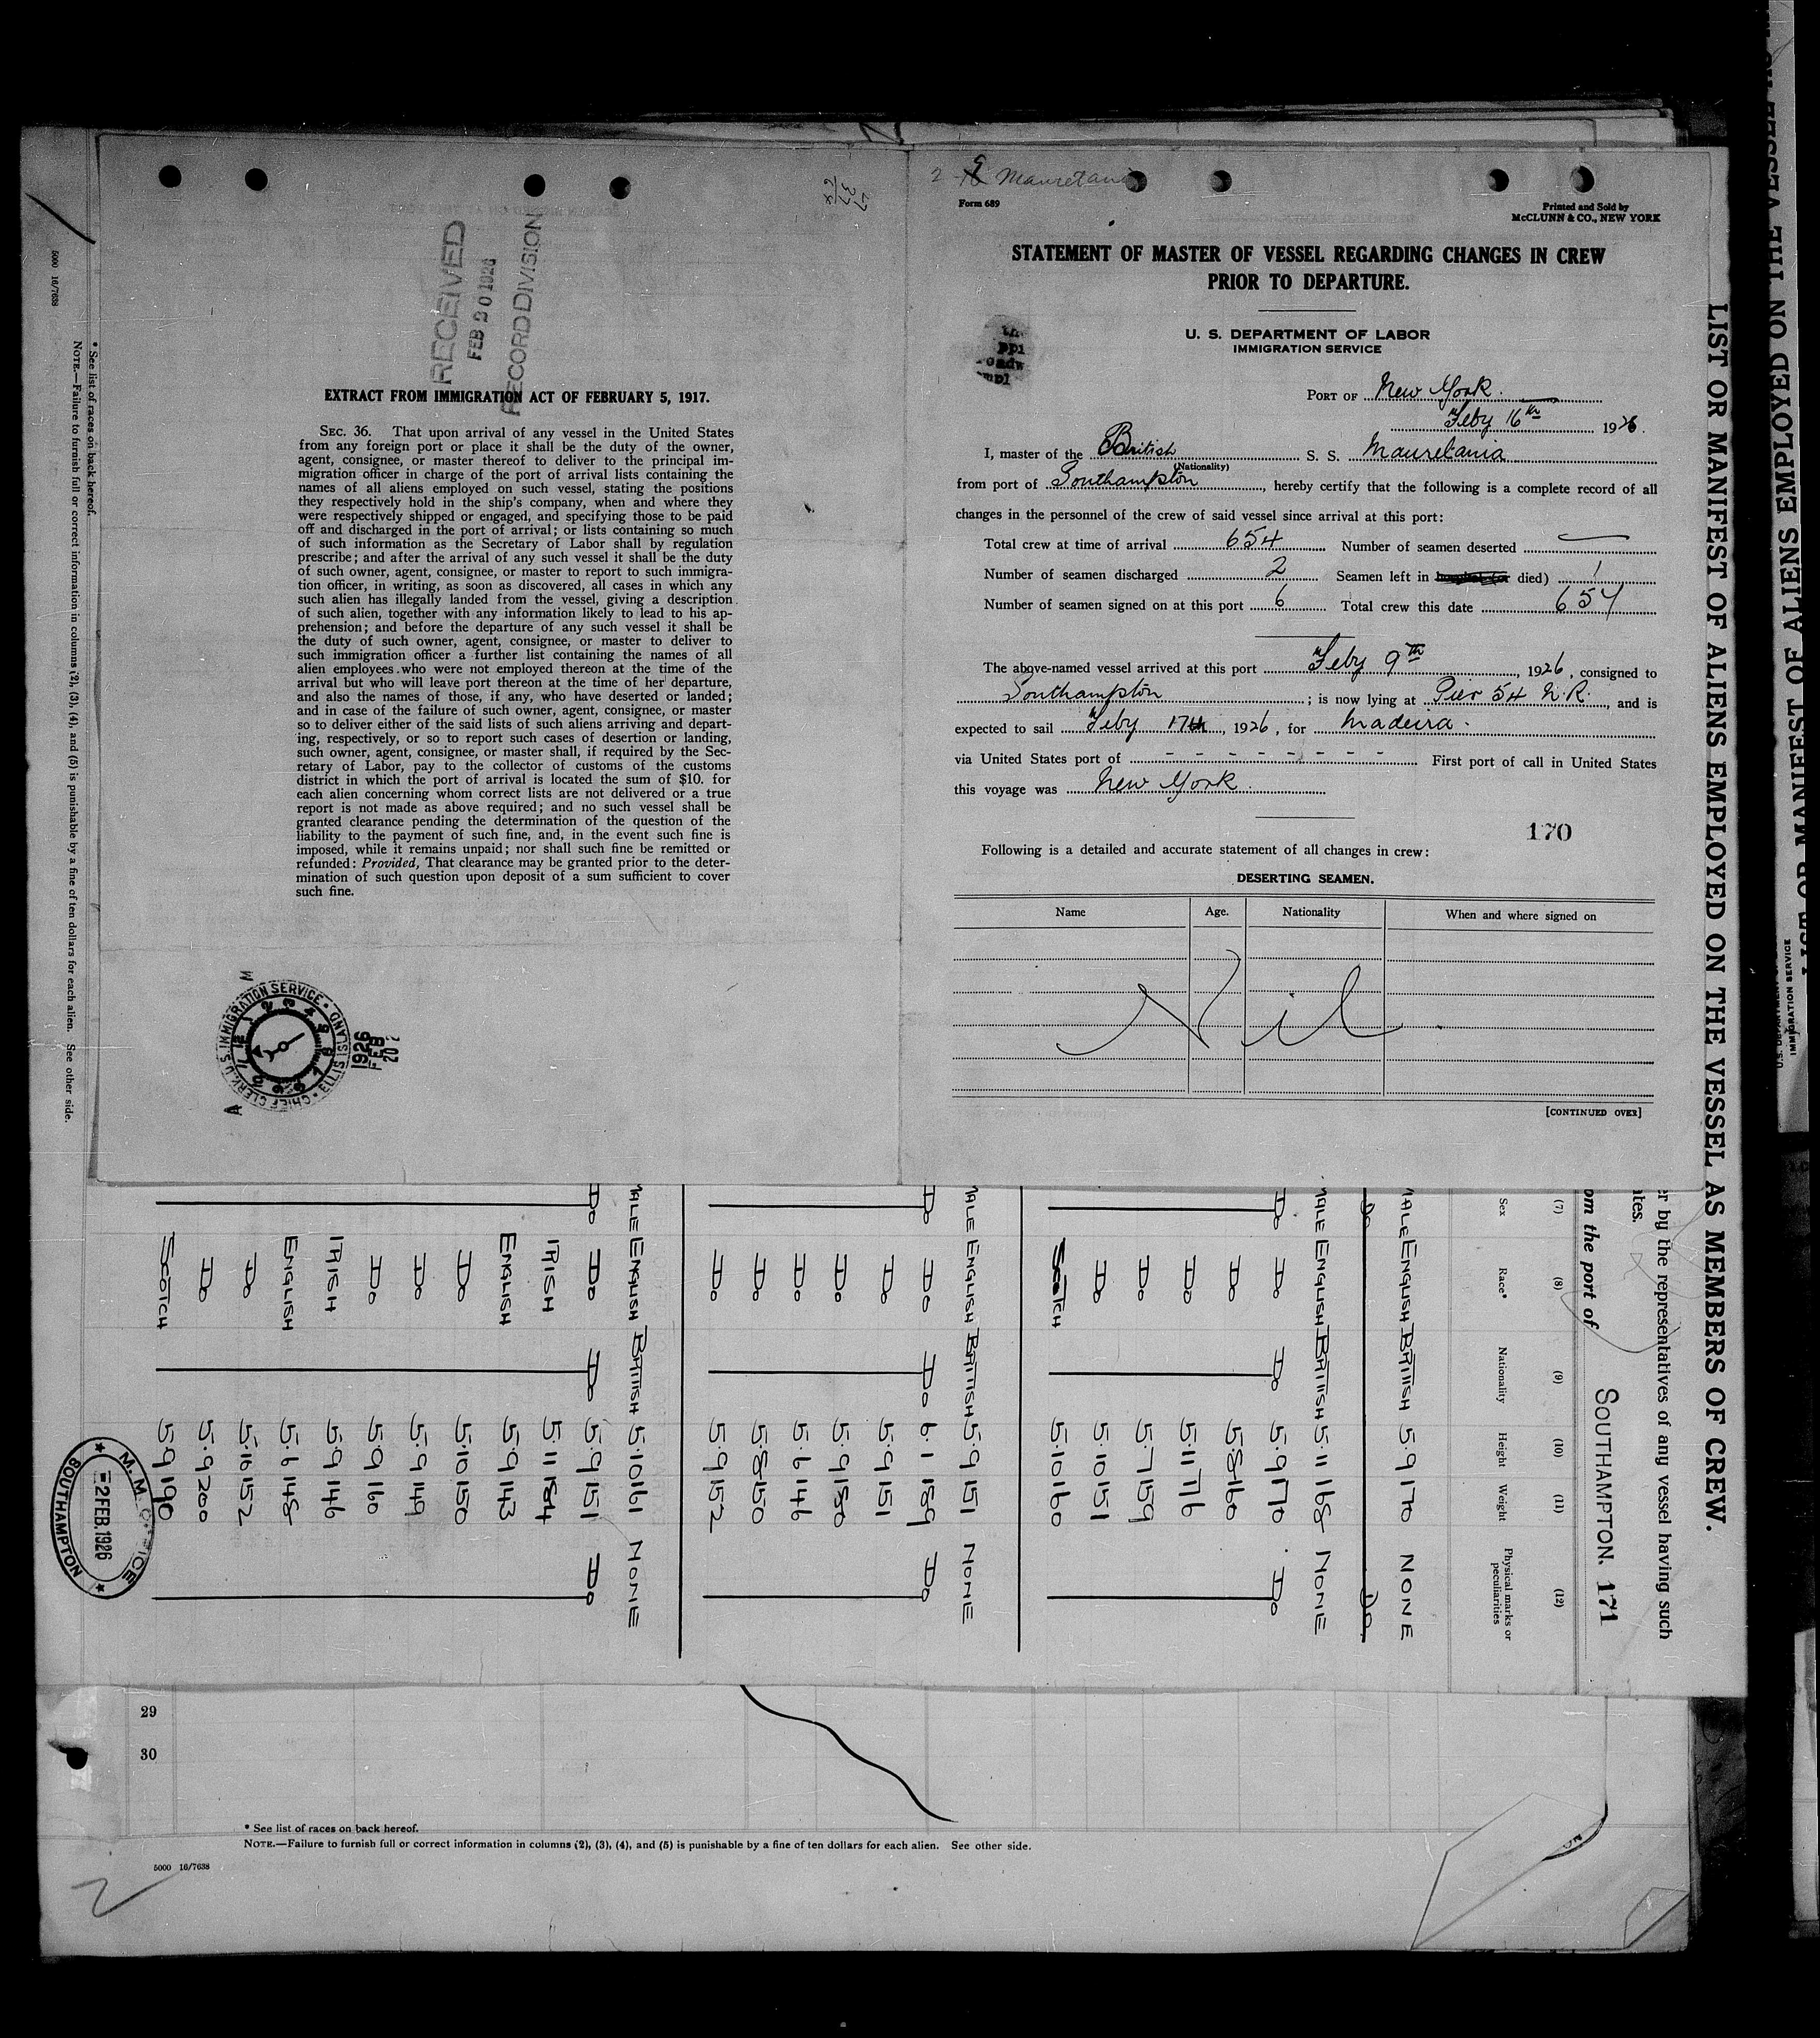 RECEIVED
FEB 20 1926
RECORD DIVISION
EXTRACT FROM IMMIGRATION ACT OF FEBRUARY 5, 1917.
SEC. 36. That upon arrival of any vessel in the United States
from any foreign port or place it shall be the duty of the owner,
agent, consignee, or master thereof to deliver to the principal im-
migration officer in charge of the port of arrival lists containing the
names of all aliens employed on such vessel, stating the positions
they respectively hold in the ship's company, when and where they
were respectively shipped or engaged, and specifying those to be paid
off and discharged in the port of arrival; or lists containing so much
of such information as the Secretary of Labor shall by regulation
prescribe; and after the arrival of any such vessel it shall be the duty
of such owner, agent, consignee, or master to report to such immigra-
tion officer, in writing, as soon as discovered, all cases in which any
such alien has illegally landed from the vessel, giving a description
of such alien, together with any information likely to lead to his ap-
prehension; and before the departure of any such vessel it shall be
the duty of such owner, agent, consignee, or master to deliver to
such immigration officer a further list containing the names of all
alien employees who were not employed thereon at the time of the
arrival but who will leave port thereon at the time of her departure,
and also the names of those, if any, who have deserted or landed;
and in case of the failure of such owner, agent, consignee, or master
so to deliver either of the said lists of such aliens arriving and depart-
ing, respectively, or so to report such cases of desertion or landing,
such owner, agent, consignee, or master shall, if required by the Sec-
retary of Labor, pay to the collector of customs of the customs
district in which the port of arrival is located the sum of $10. for
each alien concerning whom correct lists are not delivered or a true
report is not made as above required; and no such vessel shall be
granted clearance pending the determination of the question of the
liability to the payment of such fine, and, in the event such fine is
imposed, while it remains unpaid; nor shall such fine be remitted or
refunded: Provided, That clearance may be granted prior to the deter-
mination of such question upon deposit of a sum sufficient to cover
such fine.
U.S. IMMIGRATION SERVICE • ELLIS ISLAND • CHIEF CLERK
1926
FEB
20
Mauretania
Form 689
Printed and Sold by
McCLUNN & CO., NEW YORK
STATEMENT OF MASTER OF VESSEL REGARDING CHANGES IN CREW
PRIOR TO DEPARTURE.
U. S. DEPARTMENT OF LABOR
IMMIGRATION SERVICE
PORT OF New York.
Feby 16th 1926.
I, master of the British S. S. Mauretania
(Nationality)
from port of Southampton, hereby certify that the following is a complete record of all
changes in the personnel of the crew of said vessel since arrival at this port:
Total crew at time of arrival 654 Number of seamen deserted —
Number of seamen discharged 2 Seamen left in died) 1
Number of seamen signed on at this port 6 Total crew this date 657
The above-named vessel arrived at this port Feby 9th, 1926, consigned to
Southampton; is now lying at Pier 54 N.R., and is
expected to sail Feby 17th, 1926, for Madeira.
via United States port of - - - - - - - - First port of call in United States
this voyage was New York.
170
Following is a detailed and accurate statement of all changes in crew:
DESERTING SEAMEN.
Name Age. Nationality When and where signed on
Nil
[CONTINUED OVER]
LIST OR MANIFEST OF ALIENS EMPLOYED ON THE VESSEL AS MEMBERS OF CREW.
er by the representatives of any vessel having such
ates.
om the port of SOUTHAMPTON. 171
(7) (8) (9) (10) (11) (12)
Sex Race* Nationality Height Weight Physical marks or peculiarities
MALE ENGLISH BRITISH 5.9 170 NONE
Do Do
MALE ENGLISH BRITISH 5.11 168 NONE
Do Do Do 5.9 170 Do
Do 5.8 160
Do 5.11 176
Do 5.7 159
Do 5.10 151
SCOTCH 5.10 160
MALE ENGLISH BRITISH 5.9 151 NONE
Do Do Do 6.1 189 Do
Do 5.9 151
Do 5.9 180
Do 5.6 146
Do 5.8 150
Do 5.9 152
MALE ENGLISH BRITISH 5.10 161 NONE
Do Do Do 5.9 151 Do
IRISH 5.11 184
ENGLISH 5.9 143
Do 5.10 150
Do 5.9 149
Do 5.9 160
IRISH 5.9 146
ENGLISH 5.6 148
Do 5.10 152
Do 5.9 200
SCOTCH 5.9 190
M. M. OFFICE
2 FEB. 1926
SOUTHAMPTON
* See list of races on back hereof.
NOTE.—Failure to furnish full or correct information in columns (2), (3), (4), and (5) is punishable by a fine of ten dollars for each alien. See other side.
5000 16/7638
29
30
* See list of races on back hereof.
NOTE.—Failure to furnish full or correct information in columns (2), (3), (4), and (5) is punishable by a fine of ten dollars for each alien. See other side.
5000 16/7638
LIST OR MANIFEST OF ALIENS EMPLOYED ON THE VESSEL
IMMIGRATION SERVICE